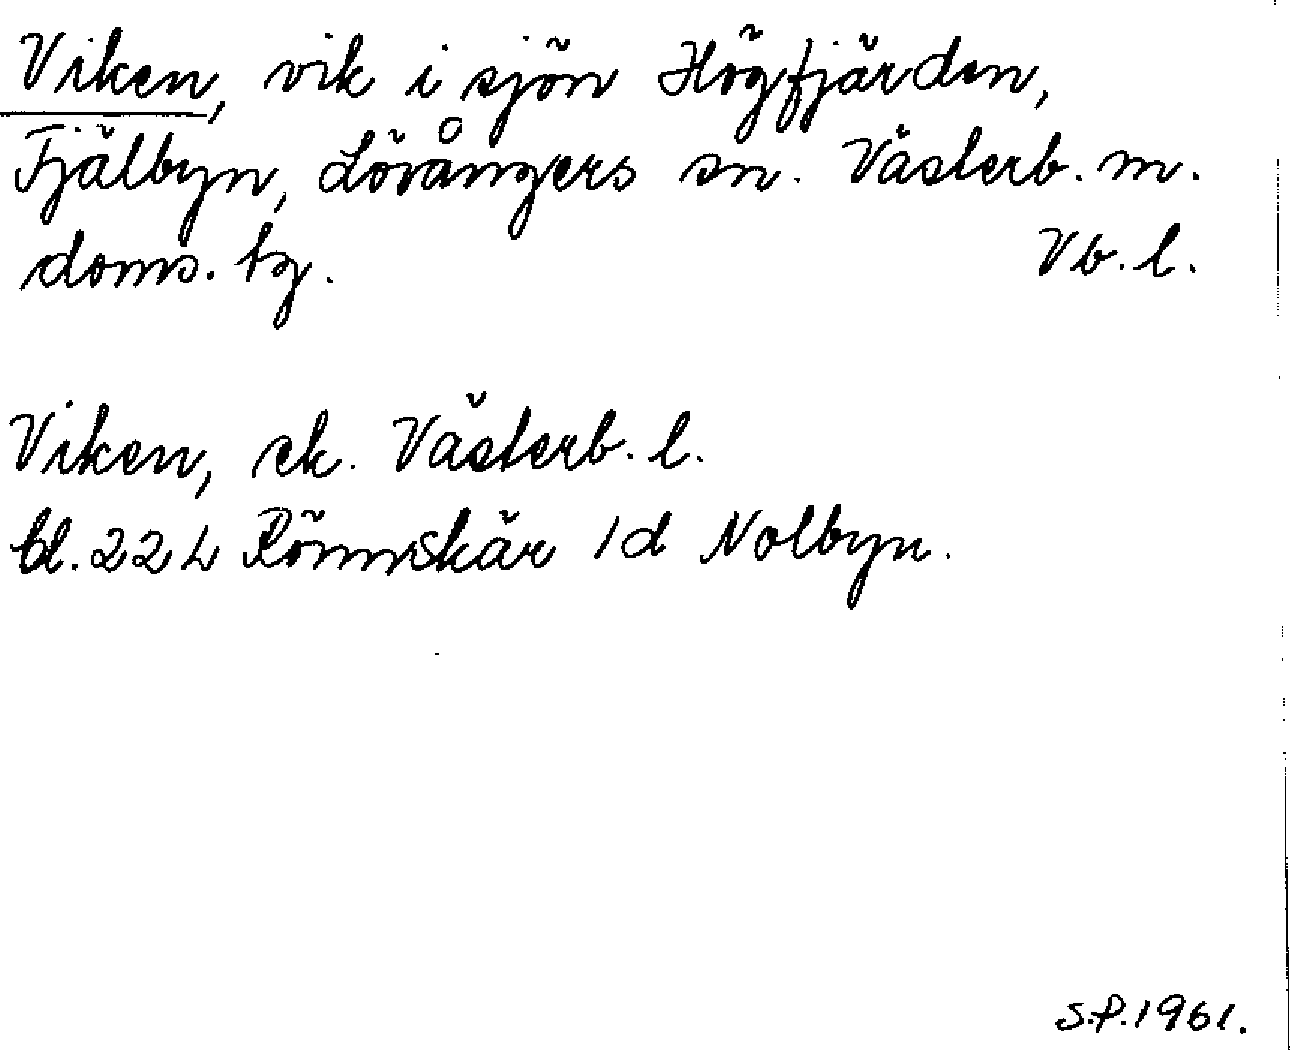 Viken, vik i sjön Högfjärden,
Fjälbyn, Lövångers sn. Västerb. m.
doms. tg. Vb. l.
Viken, ek. Västerb. l.
bl. 22 L Rönnskär 1d Nolbyn.
S.P. 1961.